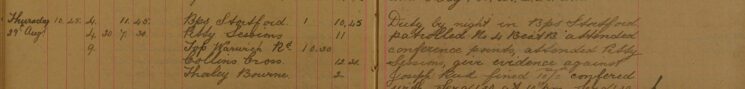 Thursday 10.45 4. 11.45. Bps Stortford 1 10,45 Duty by night in Bps Stortford,
29th Aug. 4.30 7.30 Petty Sessions 11 patrolled No 4 Beat B. attended
9. Top Warwick Rd 10.30 conference points, attended Petty
Collins Cross. 12.30 Sessions, give evidence against
Thaley Bourne. 2 Joseph fined 10/- confered